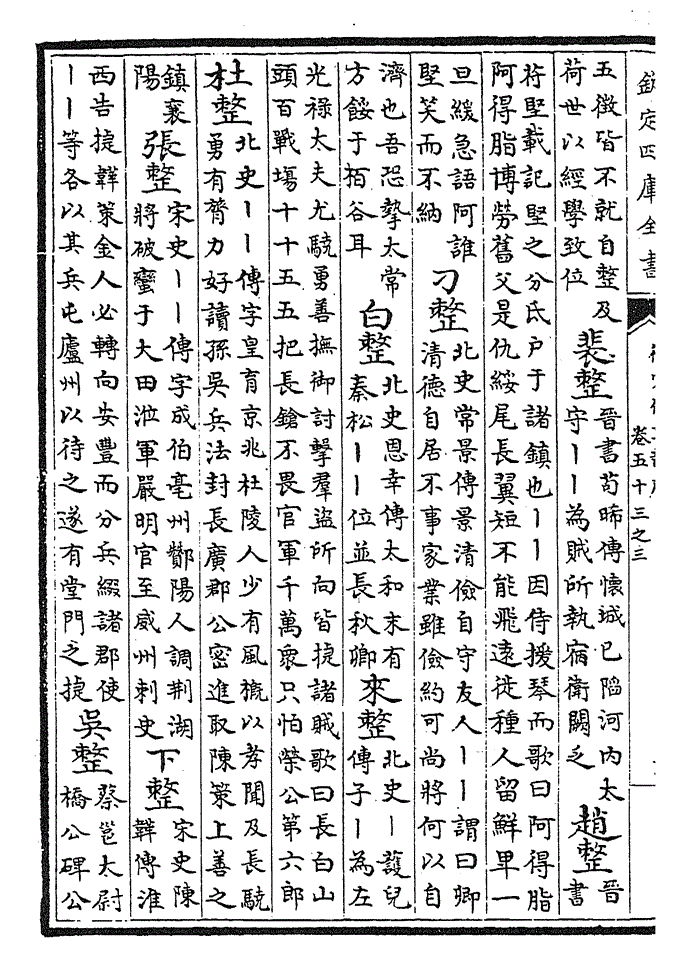 欽定四庫全書
卷五十三之三
五徵皆不就自整及
荷世以經學致位
裴整
晉書荀晞傳懷城已陷河内太
守丨丨為賊所執宿衛闕乏
趙整
晉
書
苻堅載記堅之分氐戶于諸鎮也丨丨因侍援琴而歌曰阿得脂
阿得脂博勞舊父是仇綏尾長翼短不能飛遠徙種人留鮮卑一
旦緩急語阿誰
堅笑而不納
刁整
北史常景傳景清儉自守友人丨丨謂曰卿
清德自居不事家業雖儉約可尚將何以自
濟也吾恐摯太常
方餒于栢谷耳
白整
北史恩幸傳太和末有
秦松丨丨位並長秋卿
來整
北史丨護兒
傳子丨為左
光祿太夫尤驍勇善撫御討擊羣盜所向皆捷諸賊歌曰長白山
頭百戰塲十十五五把長鎗不畏官軍千萬衆只怕榮公第六郎
杜整
北史丨丨傳字皇育京兆杜陵人少有風槪以孝聞及長驍
勇有膂力好讀孫吳兵法封長廣郡公密進取陳策上善之
鎮襄
陽
張整
宋史丨丨傳字成伯亳州酇陽人調荆湖
將破蠻于大田涖軍嚴明官至威州刺史
下整
宋史陳
韡傳淮
西告捷韡策金人必轉向安豐而分兵綴諸郡使
丨丨等各以其兵屯廬州以待之遂有堂門之捷
吳整
蔡邕太尉
橋公碑公